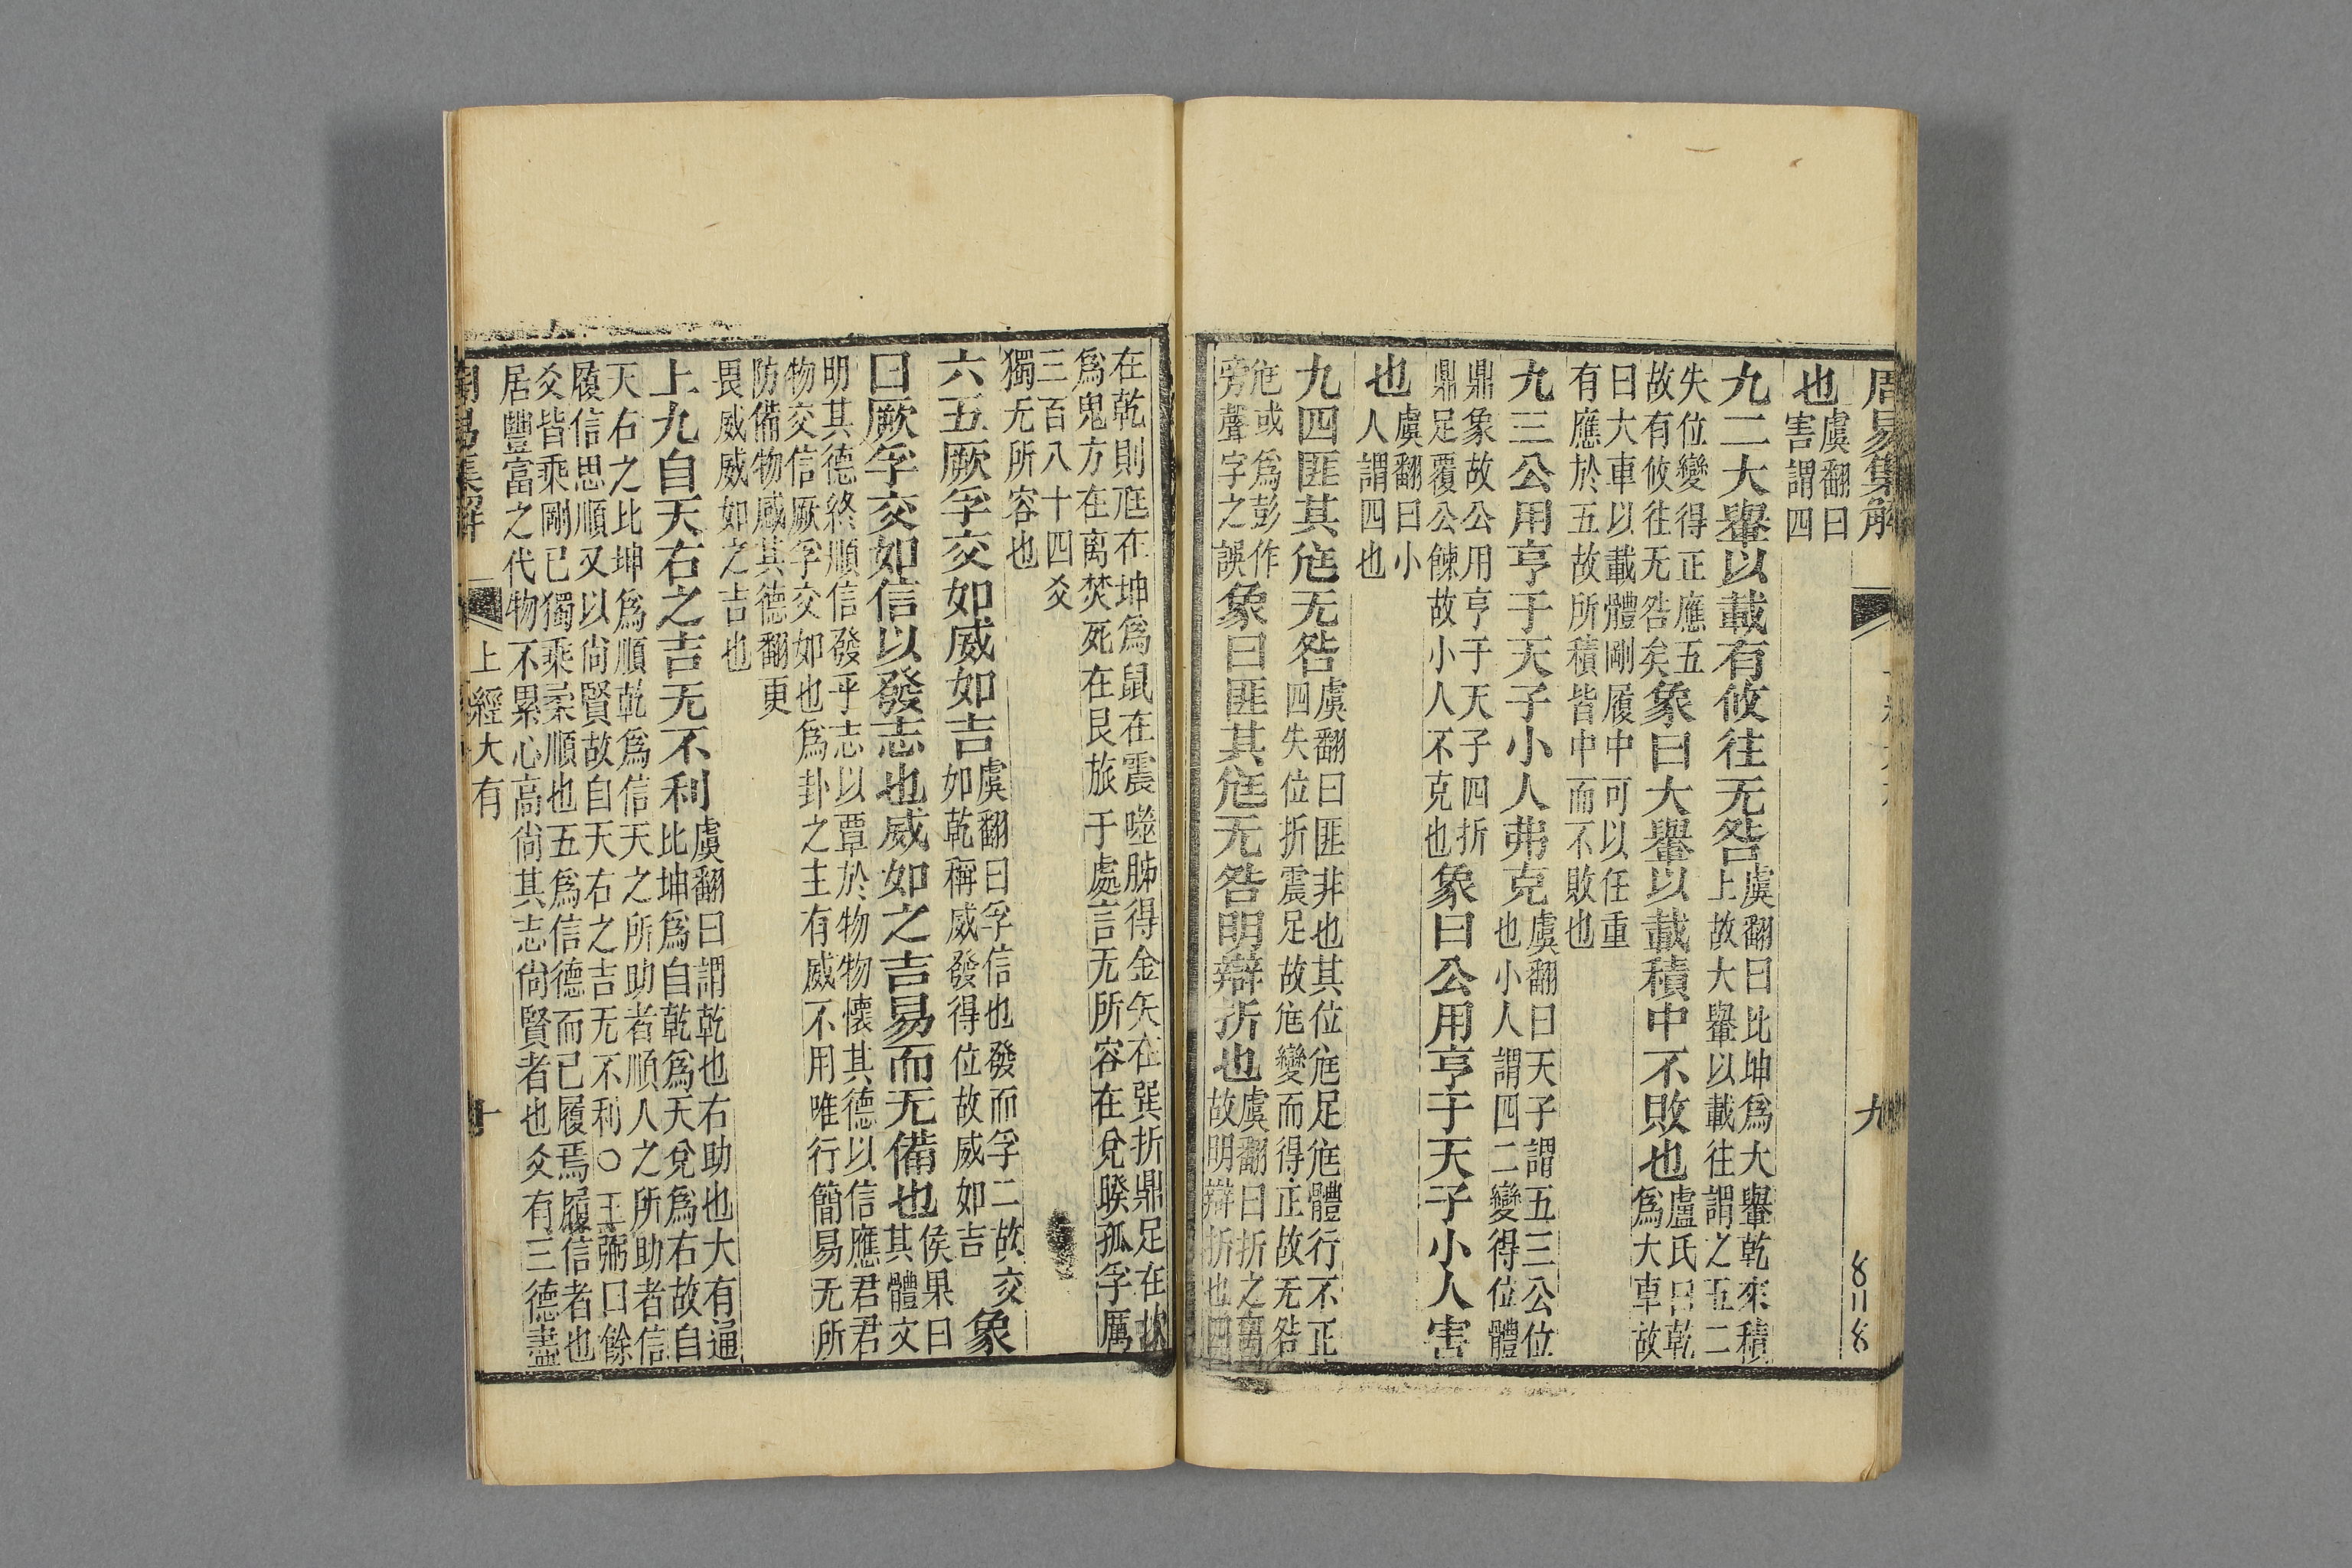 周易集解
九
也虞翻曰害謂四
九二大轝以載有攸往无咎虞翻曰比坤爲大轝乾來積上故大轝以載往謂之五二
失位變得正應五故有攸往无咎矣象曰大轝以載積中不敗也盧氏曰乾爲大車故
曰大車以載體剛履中可以任重有應於五故所積皆中而不敗也
九三公用亨于天子小人弗克虞翻曰天子謂五三公位也小人謂四二變得位體
鼎象故公用亨于天子四折鼎足覆公餗故小人不克也象曰公用亨于天子小人害
也虞翻曰小人謂四也
九四匪其尪无咎虞翻曰匪非也其位尪足尪體行不正四失位折震足故尪變而得正故无咎
尪或爲彭作旁聲字之誤象曰匪其尪无咎明辯折也虞翻曰折之離故明辯折也四
在乾則尪在坤爲鼠在震噬胏得金矢在巽折鼎足在坎爲鬼方在离焚死在艮旅于處言无所容在兌睽孤孚厲
三百八十四爻獨无所容也
六五厥孚交如威如吉虞翻曰孚信也發而孚二故交如乾稱威發得位故威如吉象
曰厥孚交如信以發志也威如之吉易而无備也侯果曰其體文
明其德終順信發乎志以覃於物物懷其德以信應君君物交信厥孚交如也爲卦之主有威不用唯行簡易无所
防備物感其德翻更畏威威如之吉也
上九自天右之吉无不利虞翻曰謂乾也右助也大有通比坤爲自乾爲天兌爲右故自
天右之比坤爲順乾爲信天之所助者順人之所助者信履信思順又以尙賢故自天右之吉无不利○王弼曰餘
爻皆乘剛已獨乘柔順也五爲信德而已履焉履信者也居豐富之代物不累心高尙其志尙賢者也爻有三德盡
上經大有
十